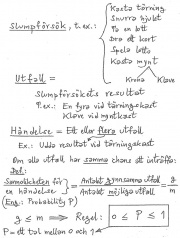 Slumpförsök, t.ex.:
Kasta tärning
Snurra hjulet
Ta en bit
Dra ett kort
Spela lotto
Kasta mynt
Krona Klave
Utfall =
= Slumpförsökets resultat
T.ex.: En fyra vid tärningskast
Klave vid myntkast
Händelse = Ett eller flera utfall
Ex.: Udda resultat vid tärningskast
Om alla utfall har samma chans att inträffa:
Sannolikheten för en händelse = Antalet gynnsamma utfall / Antalet möjliga utfall = g/m
(Eng.: Probability P)
g ≤ m ⇒ Regel: 0 ≤ P ≤ 1
P = ett tal mellan 0 och 1